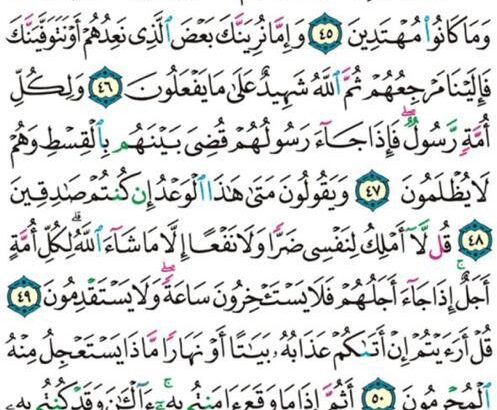 وَمَا كَانُوا۟ مُهْتَدِينَ ٤٥ وَإِمَّا نُرِيَنَّكَ بَعْضَ ٱلَّذِى نَعِدُهُمْ أَوْ نَتَوَفَّيَنَّكَ
فَإِلَيْنَا مَرْجِعُهُمْ ثُمَّ ٱللَّهُ شَهِيدٌ عَلَىٰ مَا يَفْعَلُونَ ٤٦ وَلِكُلِّ
أُمَّةٍ رَّسُولٌ ۖ فَإِذَا جَآءَ رَسُولُهُمْ قُضِىَ بَيْنَهُم بِٱلْقِسْطِ وَهُمْ
لَا يُظْلَمُونَ ٤٧ وَيَقُولُونَ مَتَىٰ هَٰذَا ٱلْوَعْدُ إِن كُنتُمْ صَٰدِقِينَ
٤٨ قُل لَّآ أَمْلِكُ لِنَفْسِى ضَرًّا وَلَا نَفْعًا إِلَّا مَا شَآءَ ٱللَّهُ ۗ لِكُلِّ أُمَّةٍ
أَجَلٌ ۚ إِذَا جَآءَ أَجَلُهُمْ فَلَا يَسْتَـْٔخِرُونَ سَاعَةً ۖ وَلَا يَسْتَقْدِمُونَ ٤٩
قُلْ أَرَءَيْتُمْ إِنْ أَتَىٰكُمْ عَذَابُهُۥ بَيَٰتًا أَوْ نَهَارًا مَّاذَا يَسْتَعْجِلُ مِنْهُ
ٱلْمُجْرِمُونَ ٥٠ أَثُمَّ إِذَا مَا وَقَعَ ءَامَنتُم بِهِۦٓ ۚ ءَآلْـَٰٔنَ وَقَدْ كُنتُم بِهِۦ